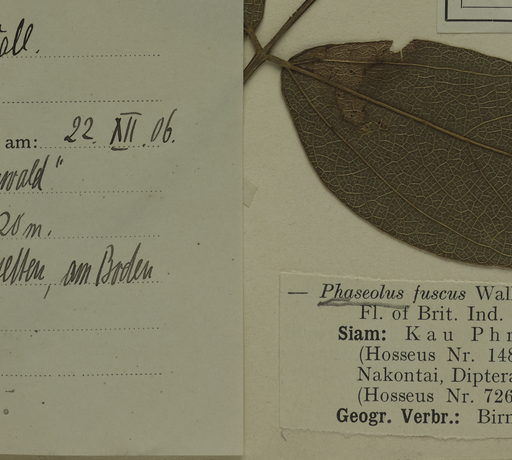 am: 22. XII. 06.
20 m.
selten, am Boden
— Phaseolus fuscus Wall
Fl. of Brit. Ind.
Siam: Kau Phr
(Hosseus Nr. 148
Nakontai, Diptera
(Hosseus Nr. 726
Geogr. Verbr.: Birm